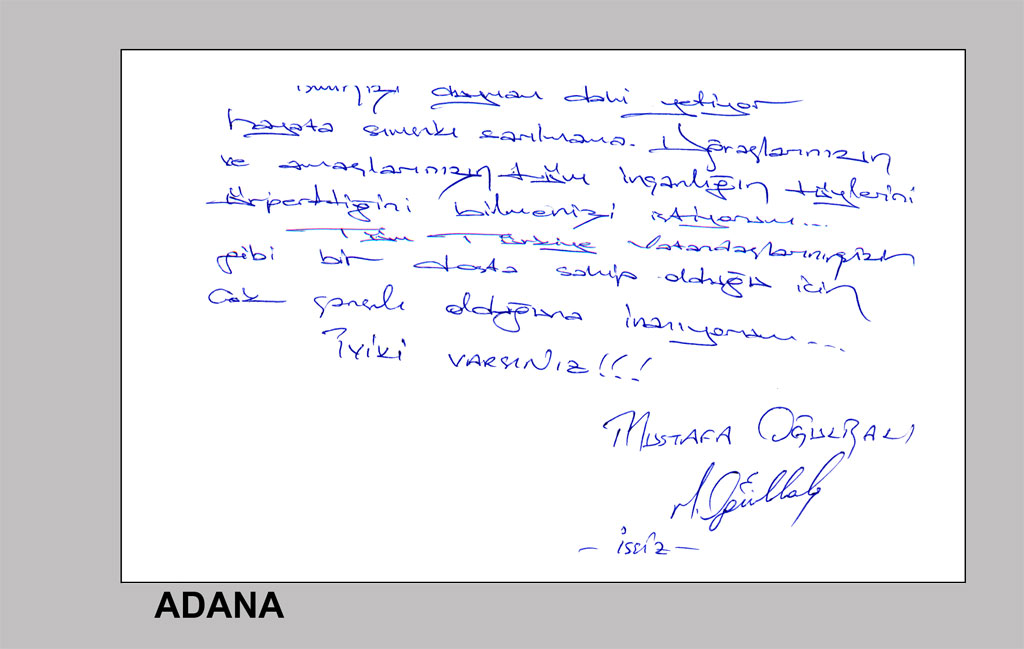 duyman dahi yetiyor
hayata sımsıkı sarılmama. Uğraşlarınızın
ve amaçlarınızın tüm insanlığın tüylerini
ürperttiğini bilmenizi istiyorum...
Tüm Türkiye Vatandaşlarının sizin
gibi bir dosta sahip olduğu için
Çok şanslı olduğuna inanıyorum...
İyiki VARSINIZ!!!
MUSTAFA
- işsiz -
ADANA